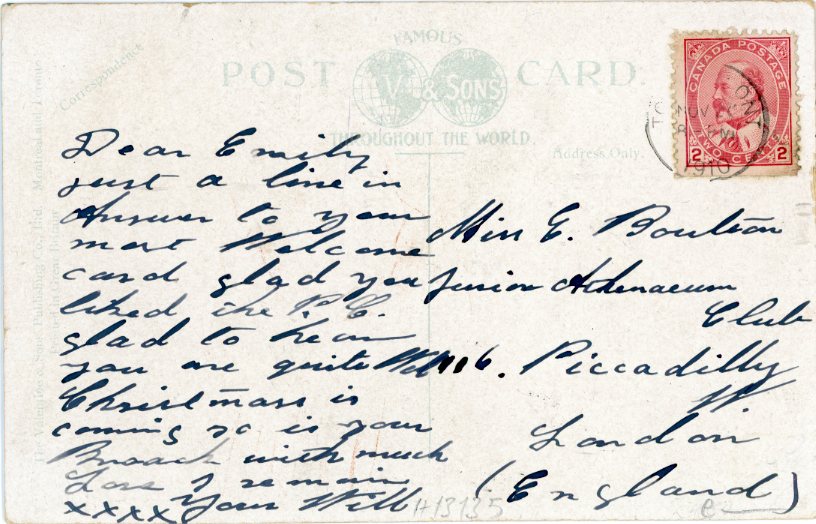 FAMOUS
POST CARD.
V. & SONS
THROUGHOUT THE WORLD.
Correspondence
Address Only.
CANADA POSTAGE
2 TWO CENTS 2
TO ONT
NOV
8
1910
Dear Emily
just a line in
Answer to your
most Welcome
card glad you
liked the P.C.
glad to hear
you are quite Well
Christmass is
coming so is your
Broach with much
Love I remain
xxxx Your Will
Miss E. Boulton
Junior Athenaeum
Club
116. Piccadilly
W
London
(England)
H13135
The Valentine & Sons Publishing Co., Ltd. Montreal and Toronto